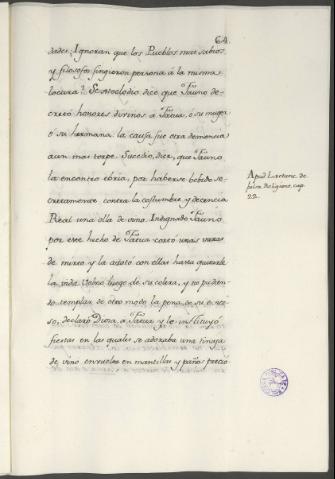 64.
dades. Ignoran que los Pueblos mas sabios,
y filosofos fingieron persona à la misma
locura? Sextoclodio dice, que Fauno de-
cretó honores divinos a Fatua, ò su muger
ò su hermana. la causa fue otra demencia
aun mas torpe. Sucedio, dice, que Fauno
la encontro ebria, por haberse bebido se-
cretamente contra la costumbre y decencia
Real una olla de vino. Indignado Fauno
por este hecho de Fatua cortó unas varas
de mirto y la azotó con ellas hasta quitarle
la vida. luego de su colera, y no pudien-
do templar de otro modo la pena de su exce-
so, declaró Diosa a Fatua y le instituyó
fiestas en las quales se adoraba una tinaja
de vino envuelta en mantillas y paños. Fació
Apud Lactanc. de
falsa Religione, cap.
22.